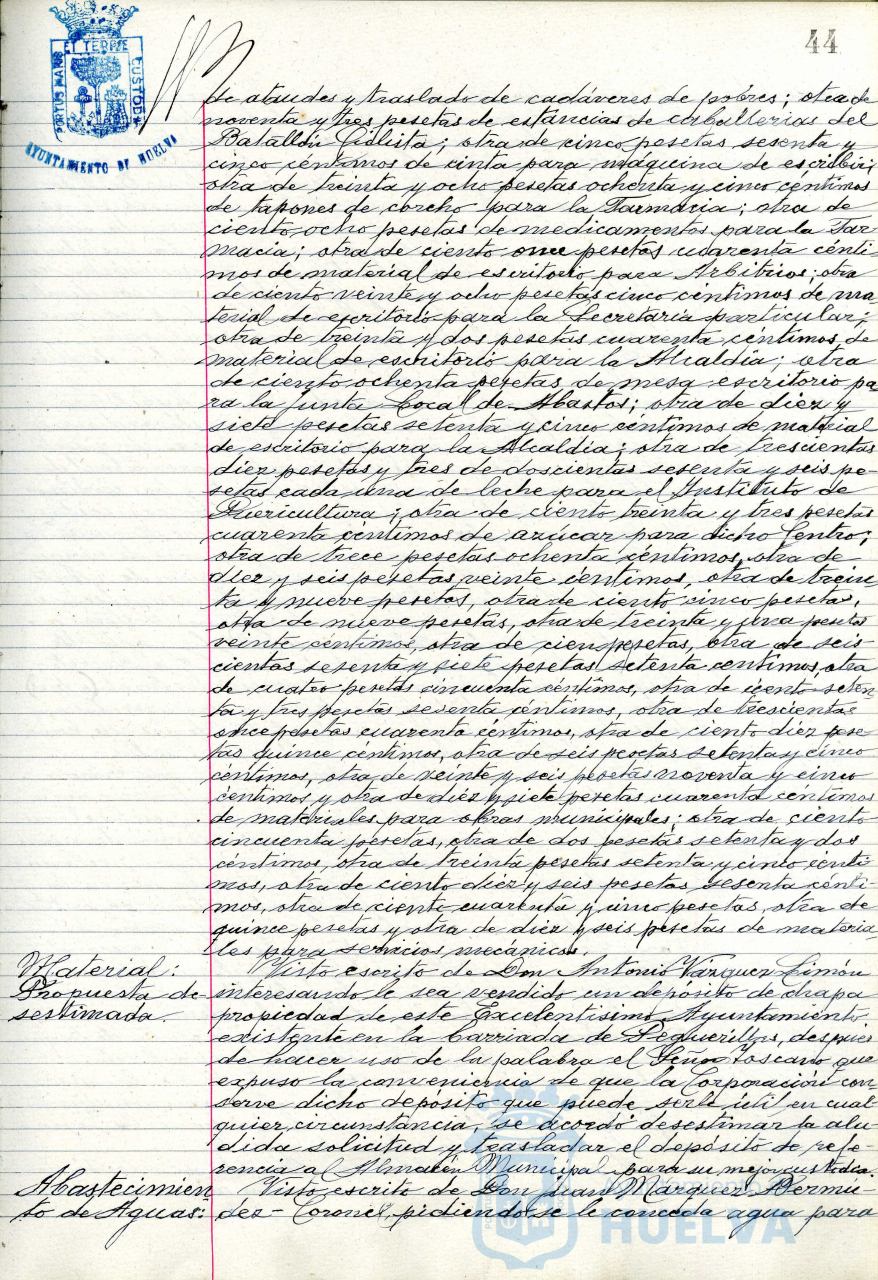 44
PORTUS MARIS ET TERRE CUSTODIA
AYUNTAMIENTO DE HUELVA
de ataudes y traslado de cadáveres de pobres; otra de
noventa y tres pesetas de estáncias de caballerias del
Batallón Ciclista; otra de cinco pesetas sesenta y
cinco céntimos de cinta para máquina de escribir;
otra de treinta y ocho pesetas ochenta y cinco céntimos
de tapones de corcho para la Farmacia; otra de
ciento ocho pesetas de medicamentos para la Far-
macia; otra de ciento once pesetas cuarenta cénti-
mos de material de escritorio para Arbitrios; otra
de ciento veinte y ocho pesetas cinco céntimos de ma-
terial de escritorio para la Secretaria particular;
otra de treinta y dos pesetas cuarenta céntimos de
material de escritorio para la Alcaldia; otra
de ciento ochenta pesetas de mesa escritorio pa-
ra la Junta Local de Abastos; otra de diez y
siete pesetas setenta y cinco céntimos de material
de escritorio para la Alcaldia; otra de trescientas
diez pesetas y tres de doscientas sesenta y seis pe-
setas cada una de leche para el Instituto de
Puericultura; otra de ciento treinta y tres pesetas
cuarenta céntimos de azucar para dicho Centro;
otra de trece pesetas ochenta céntimos, otra de
diez y seis pesetas veinte céntimos, otra de trein-
ta y nueve pesetas, otra de ciento cinco pesetas,
otra de nueve pesetas, otra de treinta y una pesetas
veinte céntimos, otra de cien pesetas, otra de seis-
cientas sesenta y siete pesetas setenta centimos, otra
de cuatro pesetas cincuenta céntimos, otra de ciento seten-
ta y tres pesetas sesenta céntimos, otra de trescientas
once pesetas cuarenta céntimos, otra de ciento diez pese-
tas quince céntimos, otra de seis pesetas setenta y cinco
céntimos, otra de veinte y seis pesetas noventa y cinco
céntimos y otra de diez y siete pesetas cuarenta céntimos
de materiales para obras municipales; otra de ciento
cincuenta pesetas, otra de dos pesetas setenta y dos
céntimos, otra de treinta pesetas setenta y cinco cénti-
mos, otra de ciento diez y seis pesetas sesenta cénti-
mos, otra de ciento cuarenta y cinco pesetas, otra de
quince pesetas y otra de diez y seis pesetas de materia-
les para servicios mecánicos.
Material:
Propuesta de-
sestimada.
Visto escrito de Don Antonio Vázquez Limón
interesando le sea vendido un depósito de chapa
propiedad de este Excelentísimo Ayuntamiento
existente en la barriada de Peguerillas, después
de hacer uso de la palabra el Señor Toscano que
expuso la conveniencia de que la Corporación con-
serve dicho depósito que puede serle útil en cual-
quier circunstancia, se acordó desestimar la alu-
dida solicitud y trasladar el depósito de refe-
rencia al Almacén Municipal para su mejor custodia.
Abastecimien
to de Aguas:
Visto escrito de Don Juan Márquez Bermú-
dez-Coronel, pidiendo se le conceda agua para
Ayuntamiento de
HUELVA